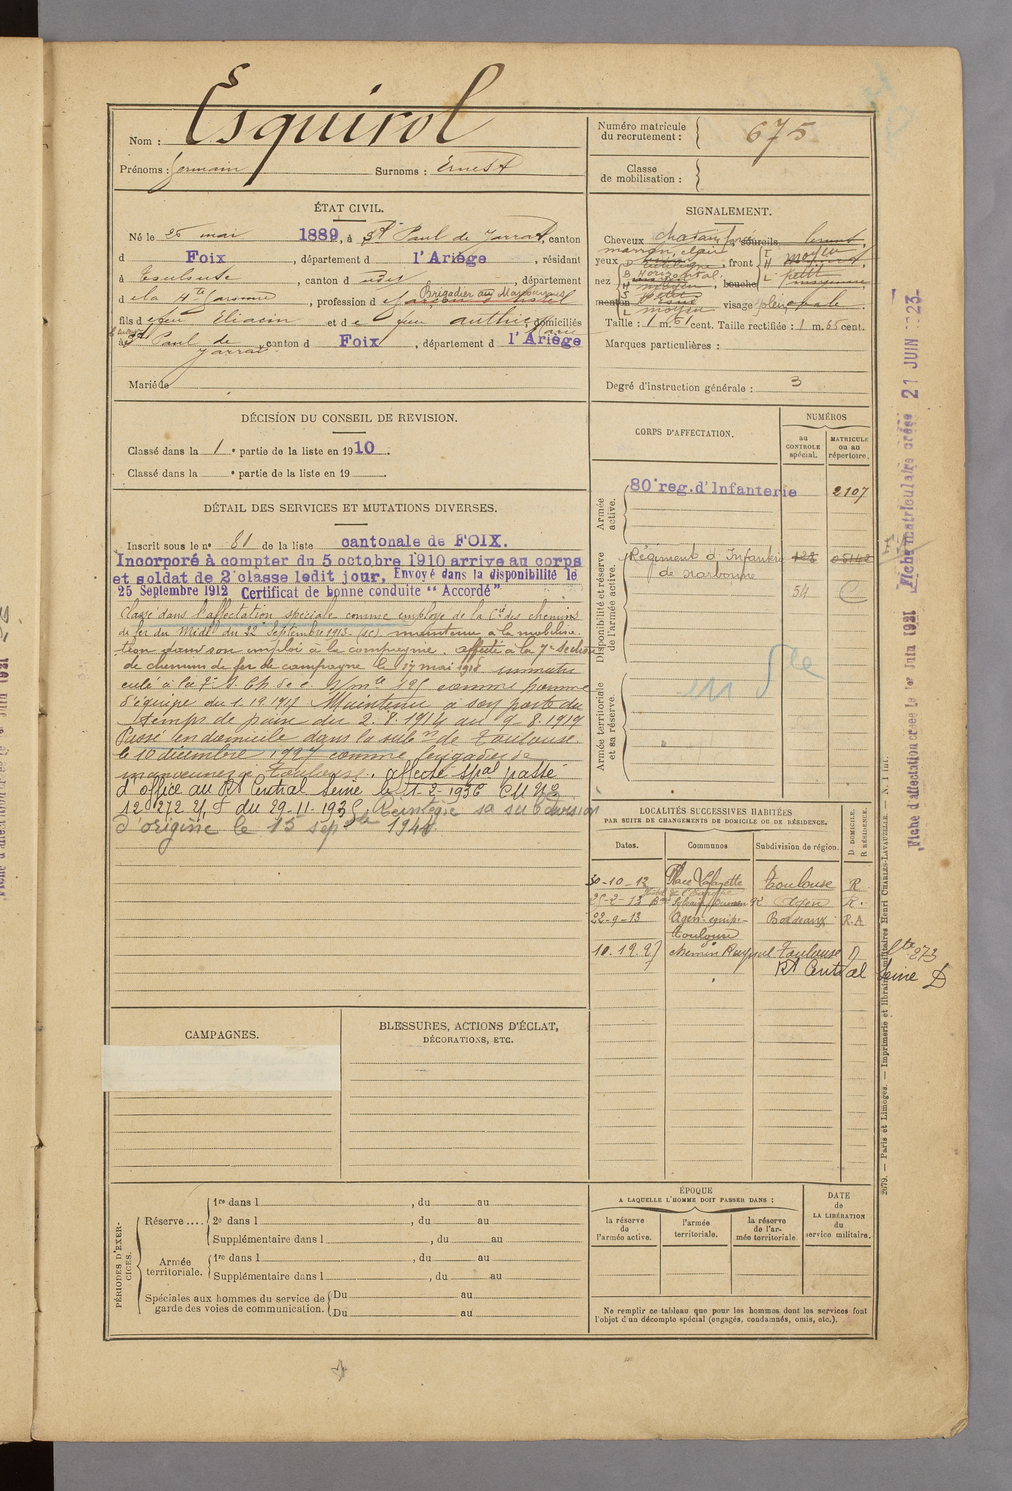 Nom : Esquirol
Prénoms : Germain Surnoms : Ernest
Numéro matricule
du recrutement : 675
Classe
de mobilisation :
ÉTAT CIVIL.
Né le 26 mai 1889, à St Paul de Jarrat, canton
d Foix, département d l'Ariège, résidant
à Toulouse, canton d udit, département
d e la Hte Garonne, profession d e Brigadier au Manoeuvres
fils d e feu Eliacin et d e feu authier, domiciliés
à St Paul de Jarrat canton d Foix, département d l'Ariège
Marié
SIGNALEMENT.
Cheveux chatain foncé sourcils
yeux marron clair, front
nez, bouche
menton visage plein, ovale
Taille : 1 m. 6 cent. Taille rectifiée : 1 m. 65 cent.
Marques particulières :
Degré d'instruction générale : 3
DÉCISION DU CONSEIL DE REVISION.
Classé dans la 1e partie de la liste en 1910.
Classé dans la e partie de la liste en 19
CORPS D'AFFECTATION.
NUMÉROS
au
CONTROLE
spécial.
MATRICULE
ou au
répertoire.
Armée
active.
80e reg. d'Infanterie 2107
Disponibilité et réserve
de l'armée active.
Régiment d'Infanterie
de Narbonne
54 C
Armée territoriale
et sa réserve.
DÉTAIL DES SERVICES ET MUTATIONS DIVERSES.
Inscrit sous le n° 81 de la liste cantonale de FOIX.
Incorporé à compter du 5 octobre 1910 arrive au corps
et soldat de 2e classe ledit jour. Envoyé dans la disponibilité le
25 Septembre 1912 Certificat de bonne conduite "Accordé"
Classé dans l'affectation spéciale comme employé de la Cie des chemins
de fer du Midi du 22 Septembre 1913. (sc) maintenu à la mobilisa-
tion dans son emploi à la compagnie. affecté à la 7e section
de chemin de fer de campagne le 17 mai 1915 immatri
culé à la 7e S. Ch. de c. s/ne 195 comme homme
d'équipe du 1.12.1917 Maintenu à son poste du
temps de paix du 2.8.1914 au 9.8.1919
Passé en domicile dans la subon de Toulouse
le 10 décembre 1927 comme brigadier de
manoeuvre à Toulouse. affecté spal passé
d'office au Rt Central Seine le 1-2-1936 CM No
12.272 2/1 du 29-11-1935 Réintégré sa subdivision
d'origine le 15 sepbre 194
LOCALITÉS SUCCESSIVES HABITÉES
PAR SUITE DE CHANGEMENTS DE DOMICILE OU DE RÉSIDENCE.
Dates. Communes Subdivision de région. D DOMICILE. R RÉSIDENCE.
30-10-12 Place Lafayette Toulouse R
25-2-13 Agen R.
22-9-13 Agen équipe Bordeaux R.A
Toulouse
10.12.27 chemin Raynal Toulouse D
Rt Central Seine D
CAMPAGNES.
BLESSURES, ACTIONS D'ÉCLAT,
DÉCORATIONS, ETC.
PÉRIODES D'EXER-
CICES.
Réserve.... 1re dans l, du au
2e dans l, du au
Supplémentaire dans l, du au
Armée
territoriale. 1re dans l, du au
Supplémentaire dans l, du au
Spéciales aux hommes du service de
garde des voies de communication. Du au
Du au
ÉPOQUE
A LAQUELLE L'HOMME DOIT PASSER DANS :
la réserve
de
l'armée active.
l'armée
territoriale.
la réserve
de l'ar-
mée territoriale.
DATE
de
LA LIBÉRATION
du
service militaire.
Ne remplir ce tableau que pour les hommes dont les services font
l'objet d'un décompte spécial (engagés, condamnés, omis, etc.).
Fiche matriculaire créée 21 JUIN 1923
Fiche d'affectation créée le 1er Juin 1921
2679. — Paris et Limoges. — Imprimerie et librairie militaires Henri CHARLES-LAVAUZELLE. — N. 1 int.